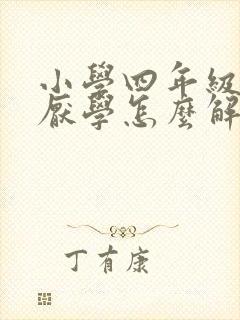 小學四年級
厭學怎麼解
丁有康